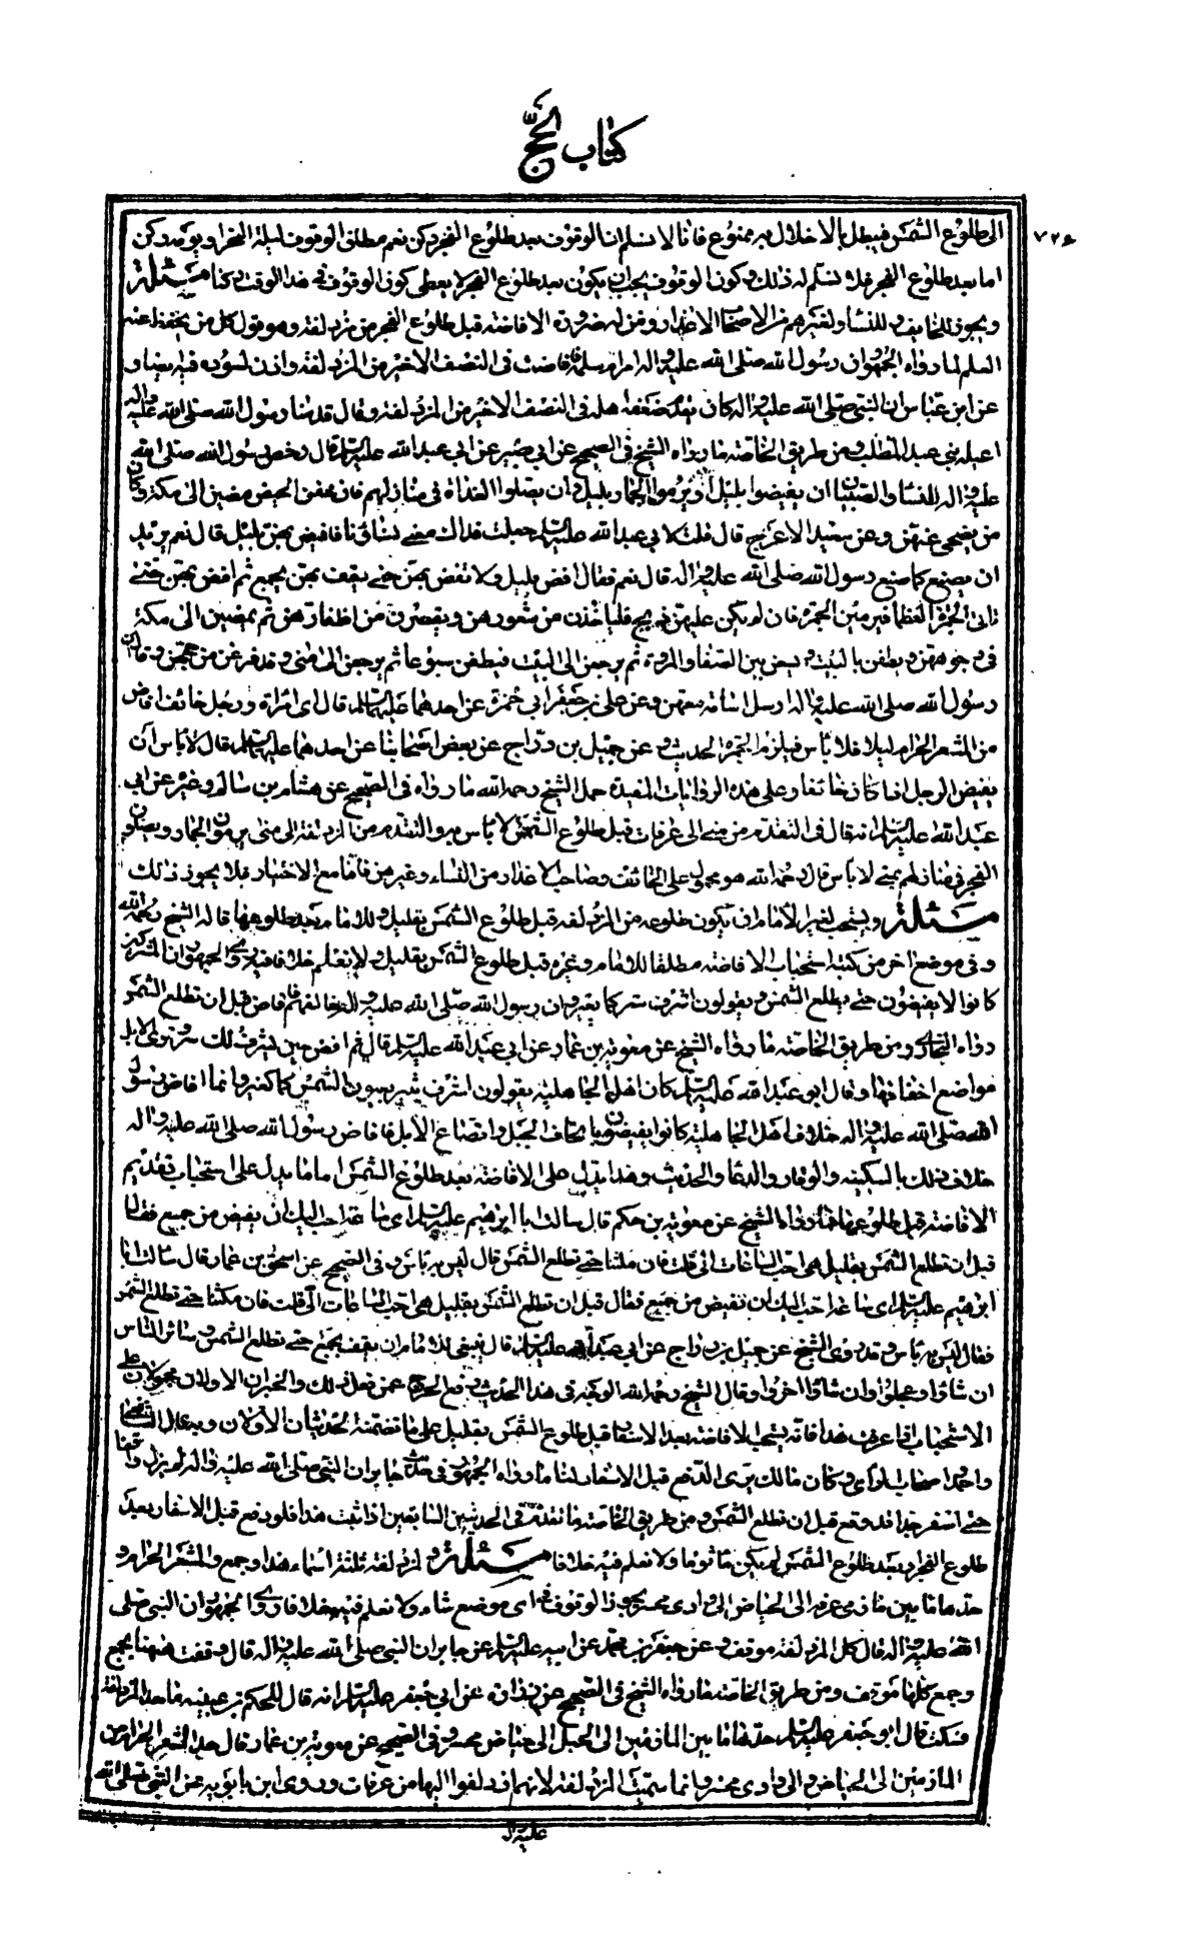 كتاب الحج
٧٢٦
الى طلوع الشمس فيبطل بالاخلال به ممنوع فانا لا نسلم ان الوقوف بعد طلوع الفجر ركن نعم مطلق الوقوف ليلة النحر او يومه ركن
اما بعد طلوع الفجر فلا نسلم له ذلك وكون الوقوف يجب ان يكون بعد طلوع الفجر لا يعطى كون الوقوف في هذا الوقت ركنا مسئلة
ويجوز للخايف وللنساء ولغيرهم من اصحاب الاعذار ومن له ضرورة الافاضة قبل طلوع الفجر من مزدلفة وهو قول كل من يحفظ عنه
العلم لما رواه الجمهور ان رسول الله صلى الله عليه واله امر ام سلمة فافاضت في النصف الاخير من المزدلفة واذن لسودة فيه ايضا و
عن ابن عباس ان النبي صلى الله عليه واله كان يقدم ضعفة اهله في النصف الاخير من المزدلفة وقال قدمنا رسول الله صلى الله عليه واله
اغيلمة بني عبد المطلب ومن طريق الخاصة ما رواه الشيخ في الصحيح عن ابي بصير عن ابي عبد الله عليه السلم قال رخص رسول الله صلى الله
عليه واله للنساء والصبيان ان يفيضوا بليل او يرموا الجمار بليل وان يصلوا الغداة في منازلهم فان خفن الحيض مضين الى مكة وكلن
من يضحى عنهن وعن سعيد الاعرج قال قلت لابي عبد الله عليه السلم جعلت فداك معنى نساء فافيض بهن بليل قال نعم تريد
ان تصنع كما صنع رسول الله صلى الله عليه واله قال نعم فقال افض بهن بليل ولا تفض بهن حتى تقف بهن بجمع ثم افض بهن حتى
تاتى الجمرة العظمى فيرمين الجمرة فان لم يكن عليهن ذبح فلياخذن من شعورهن ويقصرن من اظفارهن ثم يمضين الى مكة
في وجوههن ويطفن بالبيت ويسعين بين الصفا والمروة ثم يرجعن الى البيت فيطفن اسبوعا ثم يرجعن الى منى وقد فرغن من حجهن وقال ان
رسول الله صلى الله عليه واله ارسل اسامة معهن وعن علي بن ابي حمزة عن احدهما عليهما السلم قال اى امراة ورجل خائف افاض
من المشعر الحرام ليلا فلا باس فليرم الجمرة الحديث وعن جميل بن دراج عن بعض اصحابنا عن احدهما عليهما السلم قال لا باس ان
يفيض الرجل اذا كان خائفا وعلى هذه الروايات المقيدة حمل الشيخ رحمه الله ما رواه في الصحيح عن هشام بن سالم وغيره عن ابي
عبد الله عليه السلم انه قال في التقدم من منى الى عرفات قبل طلوع الشمس لا باس به والتقدم من المزدلفة الى منى يرمون الجمار ويصلون
الفجر في منازلهم بمنى لا باس قال رحمه الله هو محمول على الخائف وصاحب الاعذار من النساء وغيرهن فاما مع الاختيار فلا يجوز ذلك
مسئلة ويستحب لغير الامام ان يكون طلوعه من المزدلفة قبل طلوع الشمس بقليل وللامام بعد طلوعها قاله الشيخ رحمه الله
وفي موضع اخر من كتبه استحباب الافاضة مطلقا للامام وغيره قبل طلوع الشمس بقليل ولا نعلم خلافا فيه روى الجمهور ان المشركين
كانوا لا يفيضون حتى تطلع الشمس ويقولون اشرق ثبير كما نغير وان رسول الله صلى الله عليه واله خالفهم فافاض قبل ان تطلع الشمس
رواه البخاري ومن طريق الخاصة ما رواه الشيخ عن معوية بن عمار عن ابي عبد الله عليه السلم قال ثم افض حين يشرق لك ثبير وترى الابل
مواضع اخفافها وقال ابو عبد الله عليه السلم كان اهل الجاهلية يقولون اشرق ثبير يعنون الشمس كما نغير وانما افاض رسول
الله صلى الله عليه واله خلاف اهل الجاهلية كانوا يفيضون بايجاف الخيل وايضاع الابل فافاض رسول الله صلى الله عليه واله
خلاف ذلك بالسكينة والوقار والدعاء الحديث وهذا يدل على الافاضة بعد طلوع الشمس اما ما يدل على استحباب تقديم
الافاضة قبل طلوعها فما رواه الشيخ عن معوية بن حكيم قال سالت ابا ابراهيم عليه السلم اى ساعة احب اليك ان نفيض من جمع فقال
قبل ان تطلع الشمس بقليل هي احب الساعات الى قلت فان مكثنا حتى تطلع الشمس قال ليس به باس وفي الصحيح عن اسحق بن عمار قال سالت ابا
ابراهيم عليه السلم اى ساعة احب اليك ان نفيض من جمع فقال قبل ان تطلع الشمس بقليل هي احب الساعات الى قلت فان مكثنا حتى تطلع الشمس
فقال ليس به باس وقد روى الشيخ عن جميل بن دراج عن ابي عبد الله عليه السلم قال ينبغي للامام ان يقف بجمع حتى تطلع الشمس وسائر الناس
ان شاؤا عجلوا وان شاؤا اخروا وقال الشيخ رحمه الله الوجه في هذا الحديث رفع الحرج عمن فعل ذلك والخبران الاولان محمولان على
الاستحباب اذا عرفت هذا فانه يستحب الافاضة بعد الاسفار قبل طلوع الشمس بقليل على ما تضمنه الحديثان الاولان وبه قال الشافعي
واحمد واصحاب الراى وكان مالك يرى الدفع قبل الاسفار لنا ما رواه الجمهور في حديث جابر ان النبي صلى الله عليه واله لم يزل واقفا
حتى اسفر جدا فدفع قبل ان تطلع الشمس ومن طريق الخاصة ما تقدم في الحديثين السابقين اذا ثبت هذا فلو دفع قبل الاسفار بعد
طلوع الفجر او بعد طلوع الشمس لم يكن ماثوما ولا نعلم فيه خلافا مسئلة ولمزدلفة ثلثة اسماء هذا وجمع والمشعر الحرام و
حدها ما بين مازمى عرفة الى الحياض الى وادى محسر يجوز الوقوف في اى موضع شاء ولا نعلم فيه خلافا روى الجمهور ان النبي صلى
الله عليه واله قال كل المزدلفة موقف وعن جعفر بن محمد عن ابيه عليه السلم عن جابر ان النبي صلى الله عليه واله قال وقفت ههنا بجمع
وجمع كلها موقف ومن طريق الخاصة ما رواه الشيخ في الصحيح عن زرارة عن ابي جعفر عليه السلم انه قال للحكم بن عيينة ما حد المزدلفة
فسكت قال ابو جعفر عليه السلم حدها ما بين المازمين الى الجبل الى حياض محسر وفي الصحيح عن معوية بن عمار قال حد المشعر الحرام من
المازمين الى الحياض والى وادى محسر وانما سميت المزدلفة لانهم ازدلفوا اليها من عرفات وروى ابن بابويه عن النبي صلى الله
عليه واله